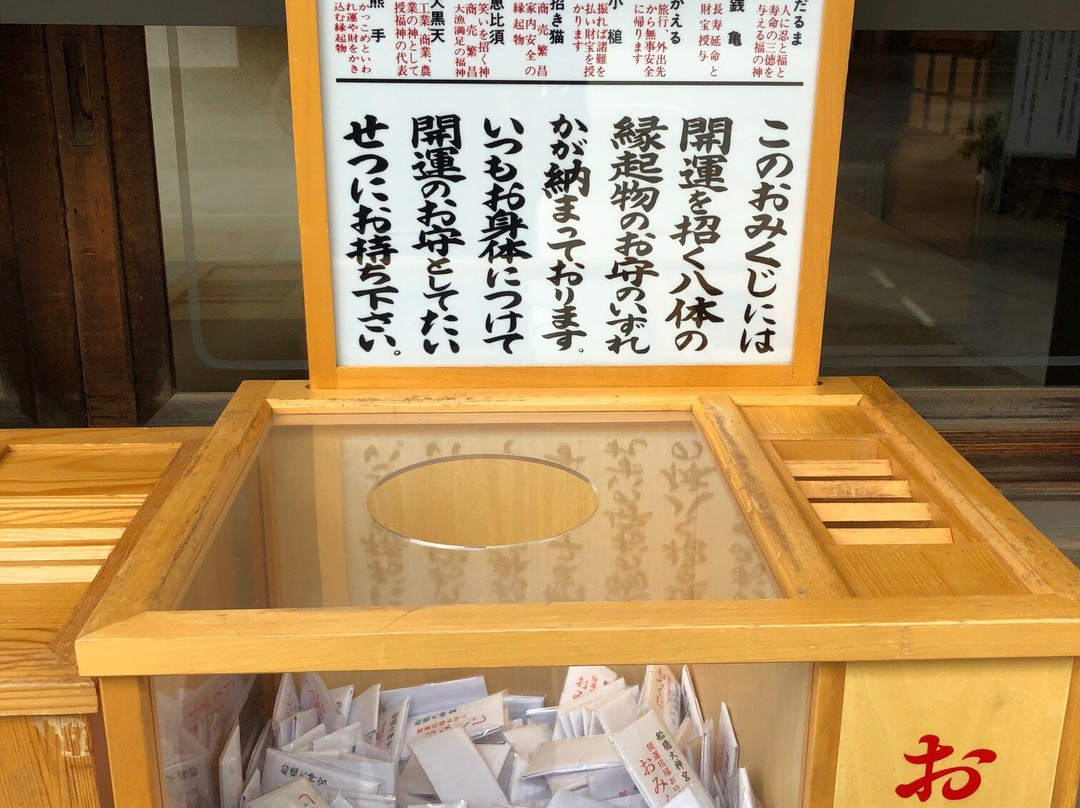 だるま
人に忍と福と
寿命の三徳を
与える福の神
銭亀
長寿延命と
財宝授与
かえる
旅行、外出先
から無事安全
に帰ります
小槌
振れば諸難を
払い財宝を授
かります
招き猫
商売繁昌
家内安全の
縁起物
恵比須
笑いを招く神
商売繁昌
大漁満足の福神
大黒天
工業、商業、農
業の神として
授福神の代表
熊手
かっこめといわ
れ運や財をかき
込む縁起物
このおみくじには
開運を招く八体の
縁起物のお守のいずれ
かが納まっております。
いつもお身体につけて
開運のお守としてたい
せつにお持ち下さい。
船橋大神宮
おみ
船橋大神宮
お